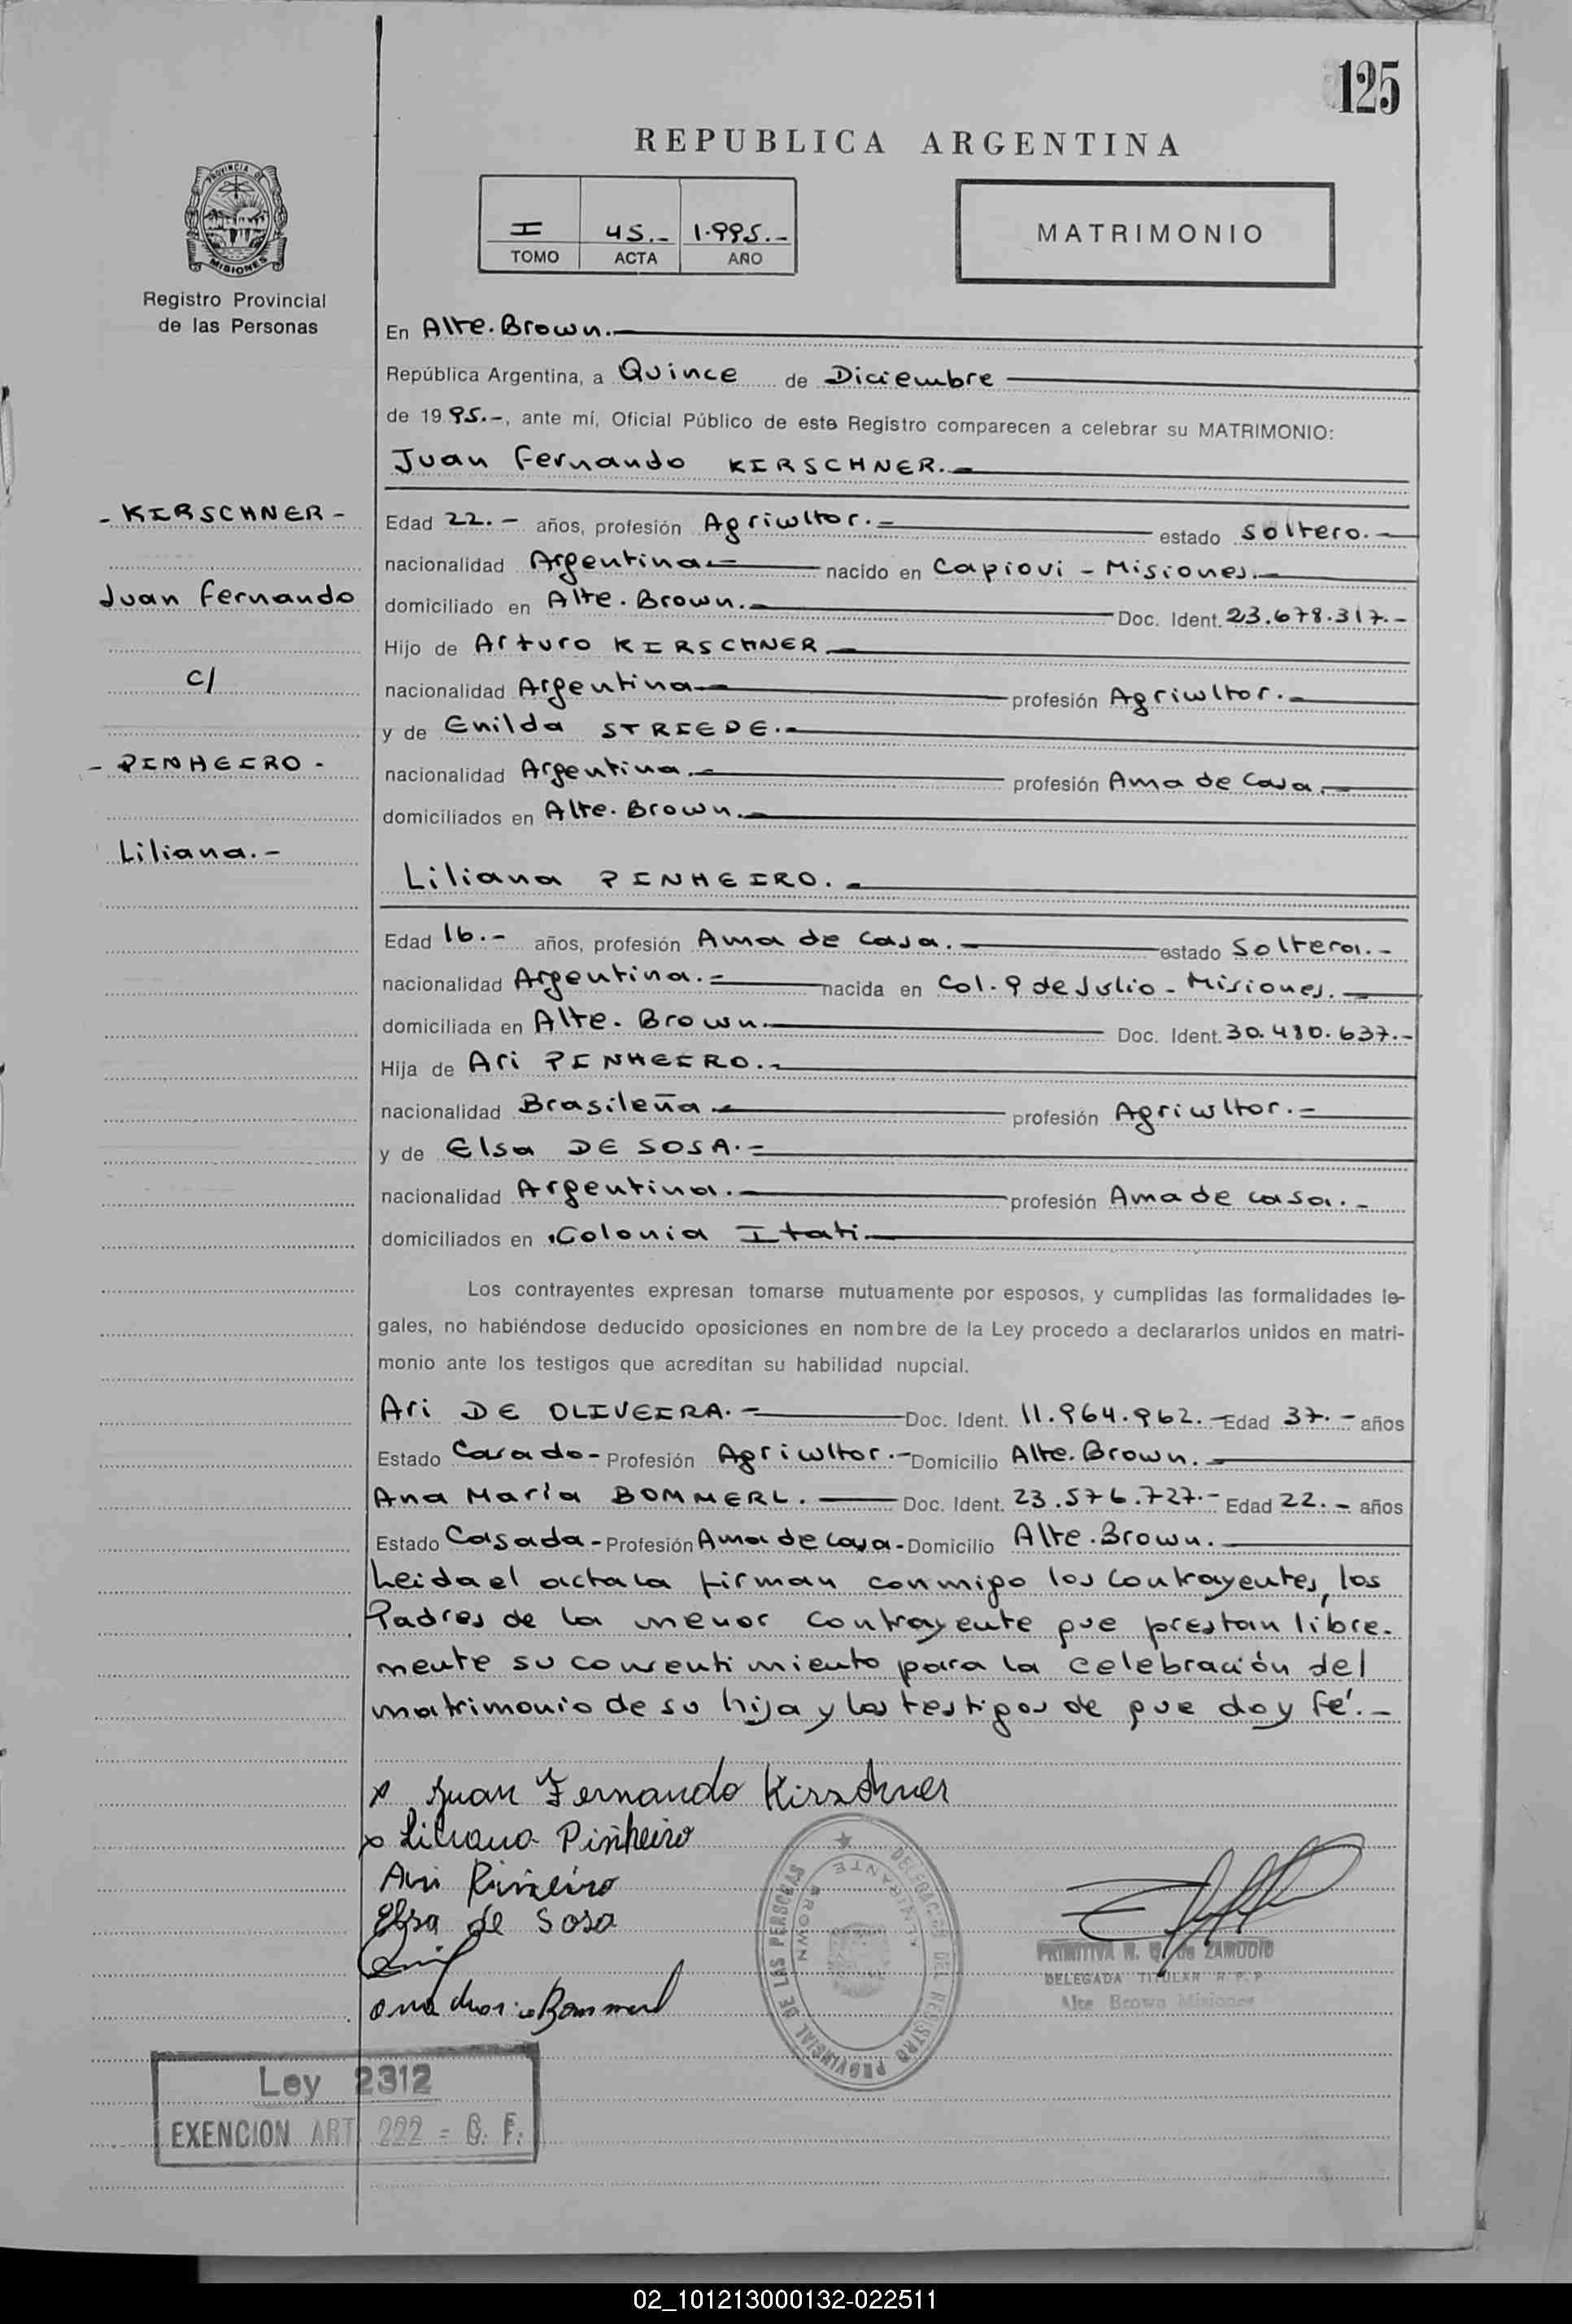 125
REPUBLICA ARGENTINA
PROVINCIA DE MISIONES
Registro Provincial
de las Personas
I 45.- 1.995.-
TOMO ACTA AÑO
MATRIMONIO
En Alte. Brown.
República Argentina, a Quince de Diciembre
de 1995.-, ante mí, Oficial Público de este Registro comparecen a celebrar su MATRIMONIO:
Juan Fernando KIRSCHNER.
- KIRSCHNER -
Juan Fernando
c/
- PINHEIRO -
Liliana.-
Edad 22.- años, profesión Agricultor.- estado Soltero.-
nacionalidad Argentina.- nacido en Capiovi - Misiones.-
domiciliado en Alte. Brown.- Doc. Ident. 23.678.317.-
Hijo de Arturo KIRSCHNER.
nacionalidad Argentina profesión Agricultor.-
y de Enilda STRIEDE.-
nacionalidad Argentina.- profesión Ama de Casa.-
domiciliados en Alte. Brown.-
Liliana PINHEIRO.-
Edad 16.- años, profesión Ama de Casa.- estado Soltera.-
nacionalidad Argentina.- nacida en Col. 9 de Julio - Misiones.-
domiciliada en Alte. Brown.- Doc. Ident. 30.480.637.-
Hija de Ari PINHEIRO.-
nacionalidad Brasileña.- profesión Agricultor.-
y de Elsa DE SOSA.-
nacionalidad Argentina.- profesión Ama de casa.-
domiciliados en Colonia Itati.
Los contrayentes expresan tomarse mutuamente por esposos, y cumplidas las formalidades le-
gales, no habiéndose deducido oposiciones en nombre de la Ley procedo a declararlos unidos en matri-
monio ante los testigos que acreditan su habilidad nupcial.
Ari DE OLIVEIRA.- Doc. Ident. 11.964.962.- Edad 37.- años
Estado Casado- Profesión Agricultor.- Domicilio Alte. Brown.-
Ana María BOMMERL.- Doc. Ident. 23.576.727.- Edad 22.- años
Estado Casada- Profesión Ama de Casa- Domicilio Alte. Brown.
Leida el acta la firman conmigo los contrayentes, los
Padres de la menor contrayente que prestan libre-
mente su consentimiento para la celebración del
matrimonio de su hija y los testigos de que doy fé.-
x Juan Fernando Kirschner
x Liliana Pinheiro
Ari
Elsa de Sosa
Ana Maria Bommerl
DELEGACION DEL REGISTRO PROVINCIAL DE LAS PERSONAS
ALMIRANTE BROWN
PRIMITIVA N. de ZAMUDIO
DELEGADA TITULAR R. P. P.
Alte Brown Misiones
Ley 2312
EXENCION ART 222 - C. F.
02_101213000132-022511